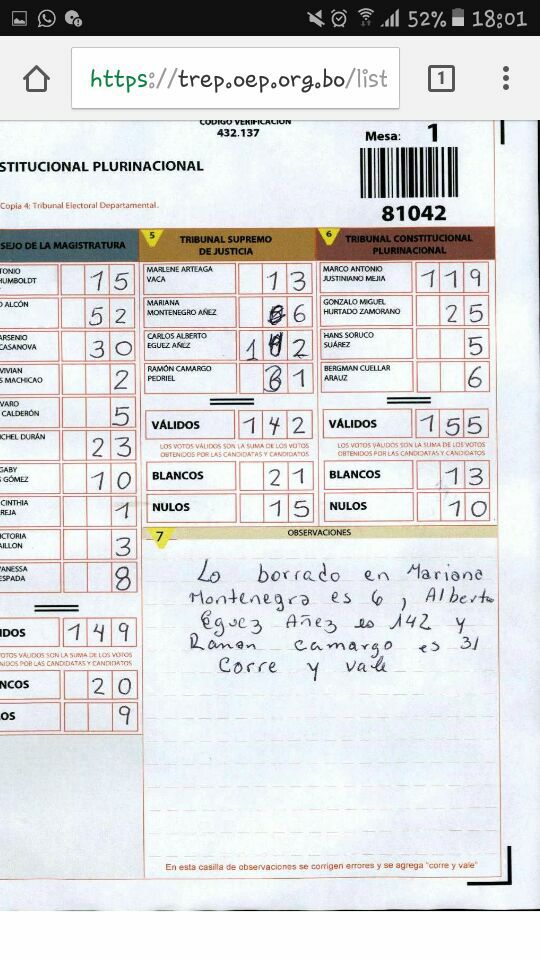 52% 18:01
https://trep.oep.org.bo/list
1
CÓDIGO VERIFICACIÓN
432.137
Mesa: 1
STITUCIONAL PLURINACIONAL
Copia 4: Tribunal Electoral Departamental.
81042
SEJO DE LA MAGISTRATURA
TONIO
HUMBOLDT 15
O ALCÓN 52
ARSENIO
CASANOVA 30
VIVIAN
S MACHICAO 2
VARO
CALDERÓN 5
ICHEL DURÁN 23
GABY
S GÓMEZ 10
CINTHIA
REJA 1
ICTORIA
AILLON 3
VANESSA
ESPADA 8
IDOS 149
OTOS VÁLIDOS SON LA SUMA DE LOS VOTOS
NIDOS POR LAS CANDIDATAS Y CANDIDATOS
NCOS 20
OS 9
5 TRIBUNAL SUPREMO
DE JUSTICIA
MARLENE ARTEAGA
VACA 13
MARIANA
MONTENEGRO AÑEZ 6
CARLOS ALBERTO
EGUEZ AÑEZ
RAMÓN CAMARGO
PEDRIEL 31
VÁLIDOS 142
LOS VOTOS VÁLIDOS SON LA SUMA DE LOS VOTOS
OBTENIDOS POR LAS CANDIDATAS Y CANDIDATOS
BLANCOS 21
NULOS 15
6 TRIBUNAL CONSTITUCIONAL
PLURINACIONAL
MARCO ANTONIO
JUSTINIANO MEJIA 119
GONZALO MIGUEL
HURTADO ZAMORANO 25
HANS SORUCO
SUÁREZ 5
BERGMAN CUELLAR
ARAUZ 6
VÁLIDOS 155
LOS VOTOS VÁLIDOS SON LA SUMA DE LOS VOTOS
OBTENIDOS POR LAS CANDIDATAS Y CANDIDATOS
BLANCOS 13
NULOS 10
7 OBSERVACIONES
Lo borrado en Mariana
Montenegra es 6, Alberto
Eguez Añez es 142 y
Ramon camargo es 31
Corre y vale
En esta casilla de observaciones se corrigen errores y se agrega "corre y vale"